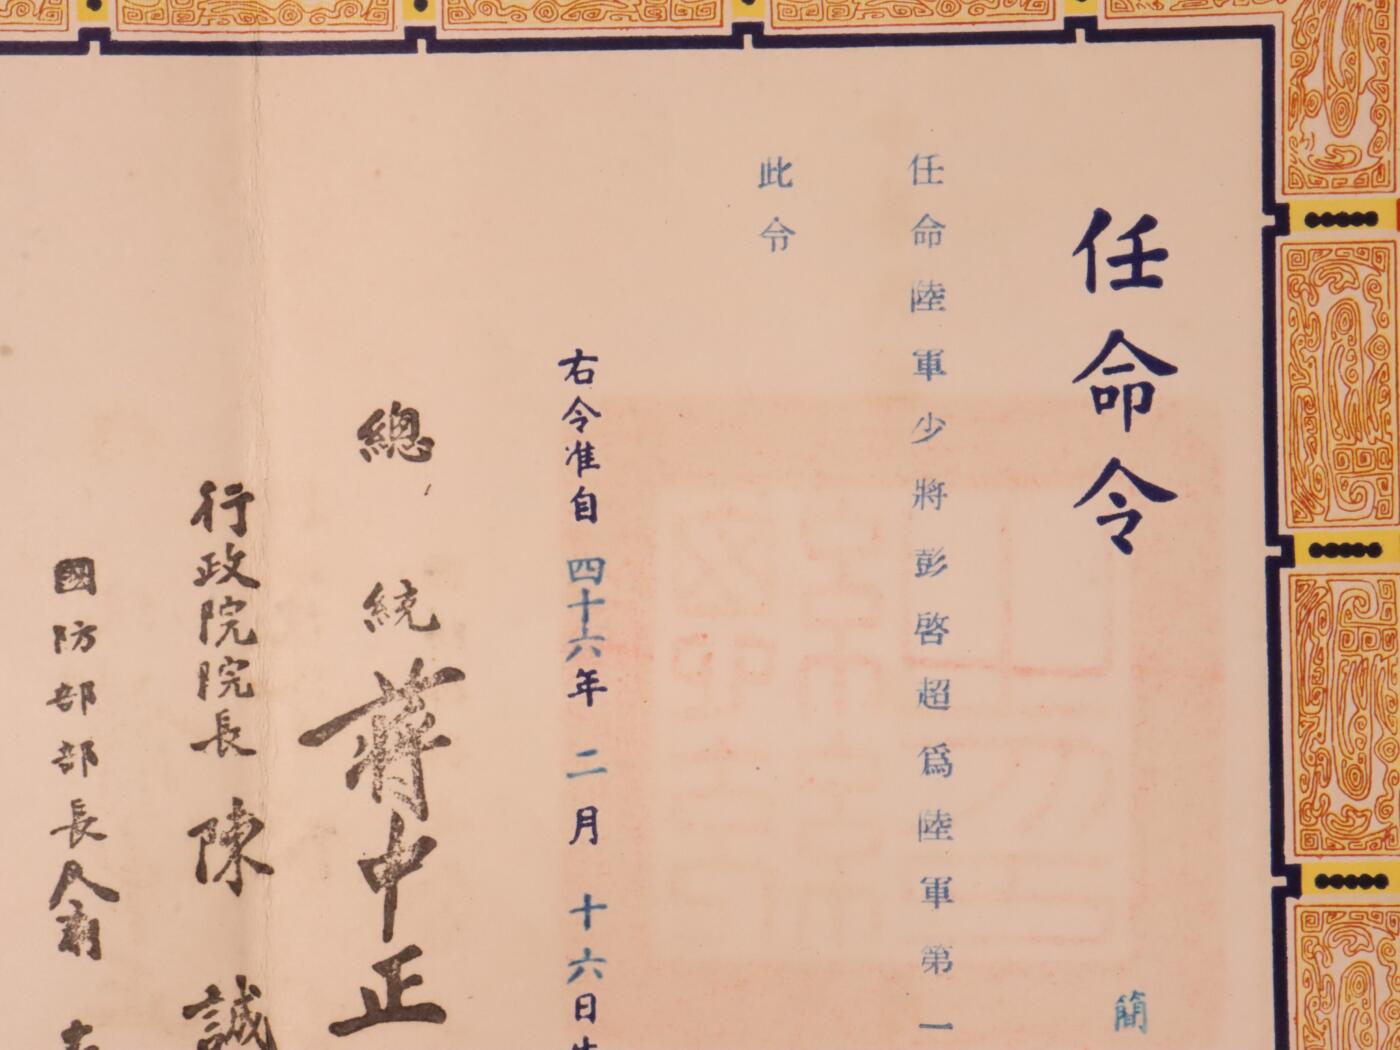 任命令
簡
任命陸軍少將彭啓超爲陸軍第一
此令
右令准自四十六年二月十六日
總統蔣中正
行政院院長陳誠
國防部部長俞